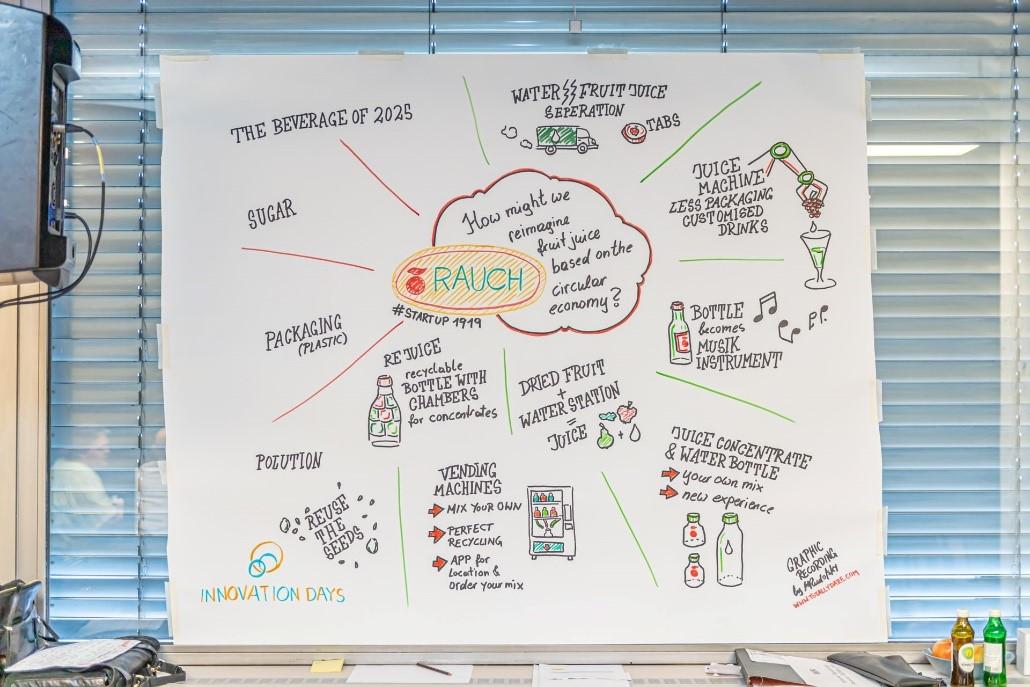 THE BEVERAGE OF 2025
WATER FRUIT JUICE
SEPERATION
TABS
JUICE
MACHINE
LESS PACKAGING
CUSTOMISED
DRINKS
SUGAR
How might we
reimagine
fruit juice
based on the
circular
economy?
RAUCH
#STARTUP 1919
BOTTLE
becomes
MUSIK
INSTRUMENT
PACKAGING
(PLASTIC)
REJUICE
recyclable
BOTTLE WITH
CHAMBERS
for concentrates
DRIED FRUIT
+
WATERSTATION
=
JUICE
+
JUICE CONCENTRATE
& WATER BOTTLE
your own mix
new experience
POLUTION
REUSE
THE
SEEDS
VENDING
MACHINES
MIX YOUR OWN
PERFECT
RECYCLING
APP for
Location &
order your mix
INNOVATION DAYS
GRAPHIC
RECORDING
by
WWW.TOTALLYDARE.COM